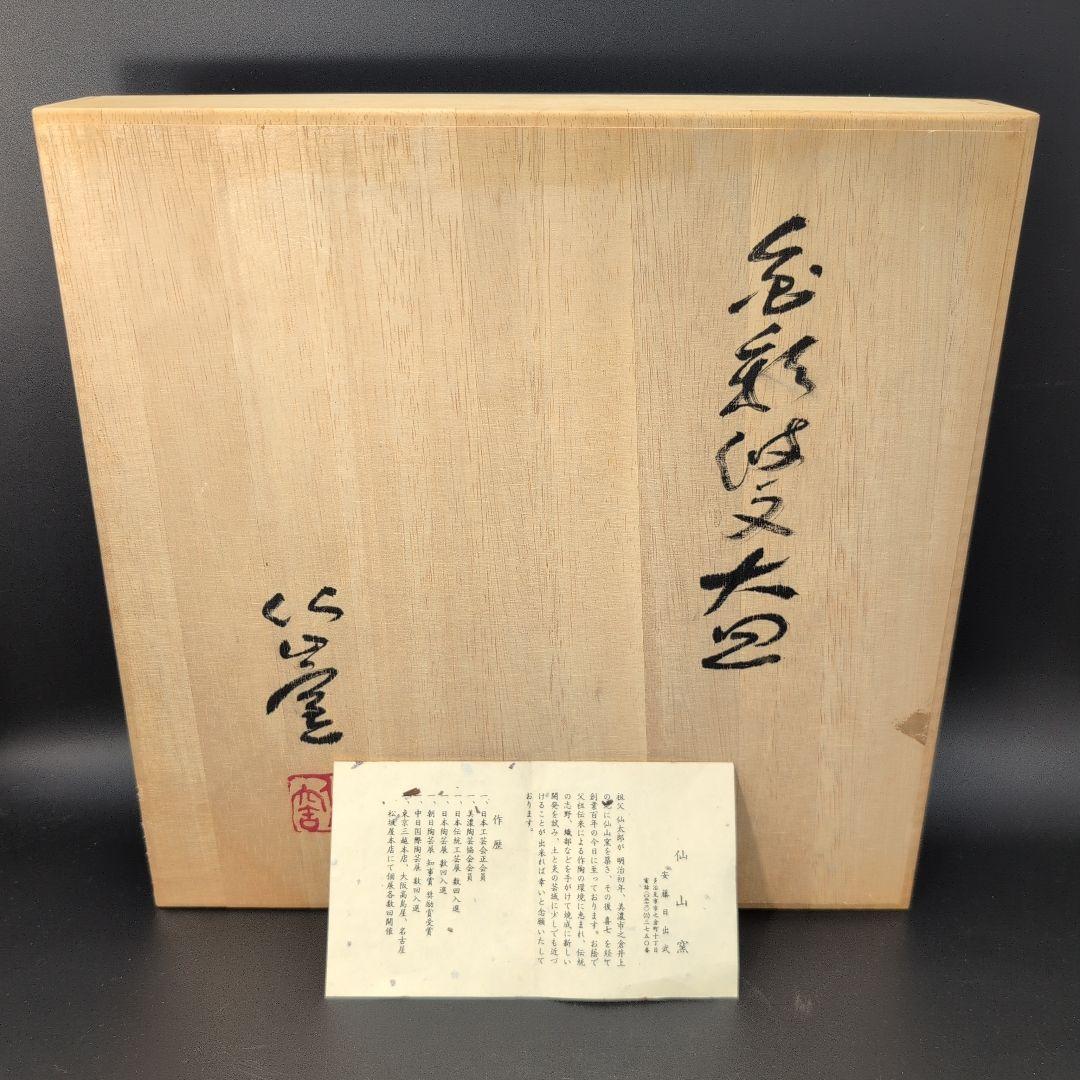 金彩波文大皿
仙山窯
仙山窯
安藤日出武
多治見市市之倉町十丁目
祖父 仙太郎が 明治初年、美濃市之倉井上
の地に仙山窯を築き、その後 喜七 を経て
創業百年の今日に至っております。お蔭で
父祖伝来による作陶の環境に恵まれ、伝統
の志野、織部などを手がけて焼成に新しい
開発を試み、土と炎の芸域に少しでも近づ
けることが出来れば幸いと念願いたして
おります。
作歴
一、日本工芸会正会員
一、美濃陶芸協会会員
一、日本伝統工芸展 数回入選
一、日本陶芸展 数回入選
一、朝日陶芸展 知事賞 奨励賞受賞
中日国際陶芸展 数回入選
東京三越本店、大阪高島屋、名古屋
松坂屋本店にて個展各数回開催